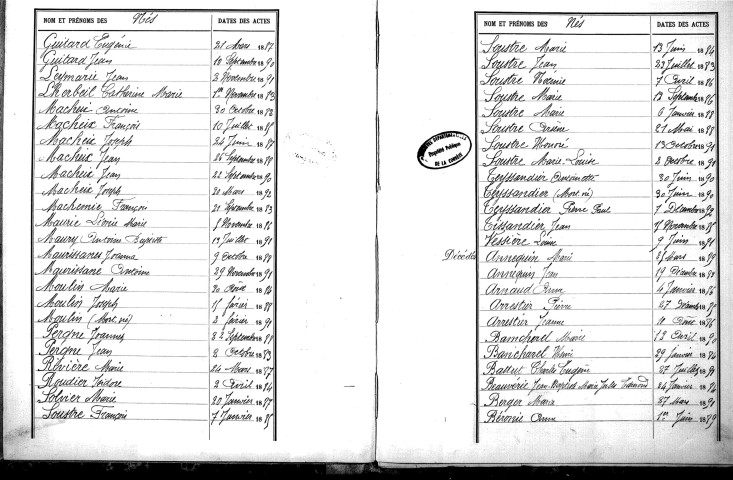 NOM ET PRÉNOMS DES Nés DATES DES ACTES
Guitard Eugénie 21 Mars 1887
Guitard Jean 10 Septembre 1890
Leymarie Jean 2 Novembre 1891
L'Herbeil Catherine Marie 1er Novembre 1883
Macheix Antoine 30 Octobre 1882
Macheix François 10 Juillet 188
Macheix Joseph 24 Juin 1887
Macheix Jean 26 Septembre 1888
Macheix Jean 22 Septembre 1890
Macheix Joseph 20 Mars 1892
Machemie François 21 Septembre 1883
Maurie Léonie Marie 8 Novembre 1886
Maury Antoine Baptiste 19 Juillet 1891
Maurissanes Joanna 9 Octobre 1888
Maurissane Antoine 29 Novembre 1891
Moulin Marie 20 Août 1886
Moulin Joseph 15 février 1888
Moulin (Mort né) 2 février 1890
Pergne Joannes 22 Septembre 188
Pergne Jean 8 Octobre 1883
Révière Marie 24 Mars 1887
Roudier Isidore 2 Avril 1884
Solvier Marie 20 Janvier 1887
Soustre François 7 Janvier 188
NOM ET PRÉNOMS DES Nés DATES DES ACTES
Soustre Marie 13 Juin 1884
Soustre Jean 23 Juillet 1883
Soustre 7 Avril 1886
Soustre Marie 12 Septembre 1886
Soustre Marie 6 Janvier 1888
Soustre 21 Mai 1888
Soustre Honoré 13 Octobre 1891
Soustre Marie-Louise 2 Octobre 1891
Teyssandier Antoinette 30 Juin 1890
Teyssandier (Mort né) 30 Juin 1890
Teyssandier Pierre Paul 7 Décembre 1892
Tissandier Jean 15 Novembre 188
Vessière Louise 9 Juin 1891
Décédés Annequin Marie 25 Mars 1889
Annequin Jean 19 Décembre 1892
Arnaud Anne 4 Janvier 1886
Arrestier Pierre 27 18
Arrestier Jeanne 11 Août 1886
Banchard Marie 12 Avril 1890
Banchard Rémi 29 Janvier 1884
Battut Charles Eugène 27 Juillet 18
Beauverie Jean-Baptiste Marie Jules Edmond 24 Janvier 1884
Berger Maria 27 Mars 1891
Béronie Anne 1er Juin 1889
Propriété Publique
DE LA CORRÈZE